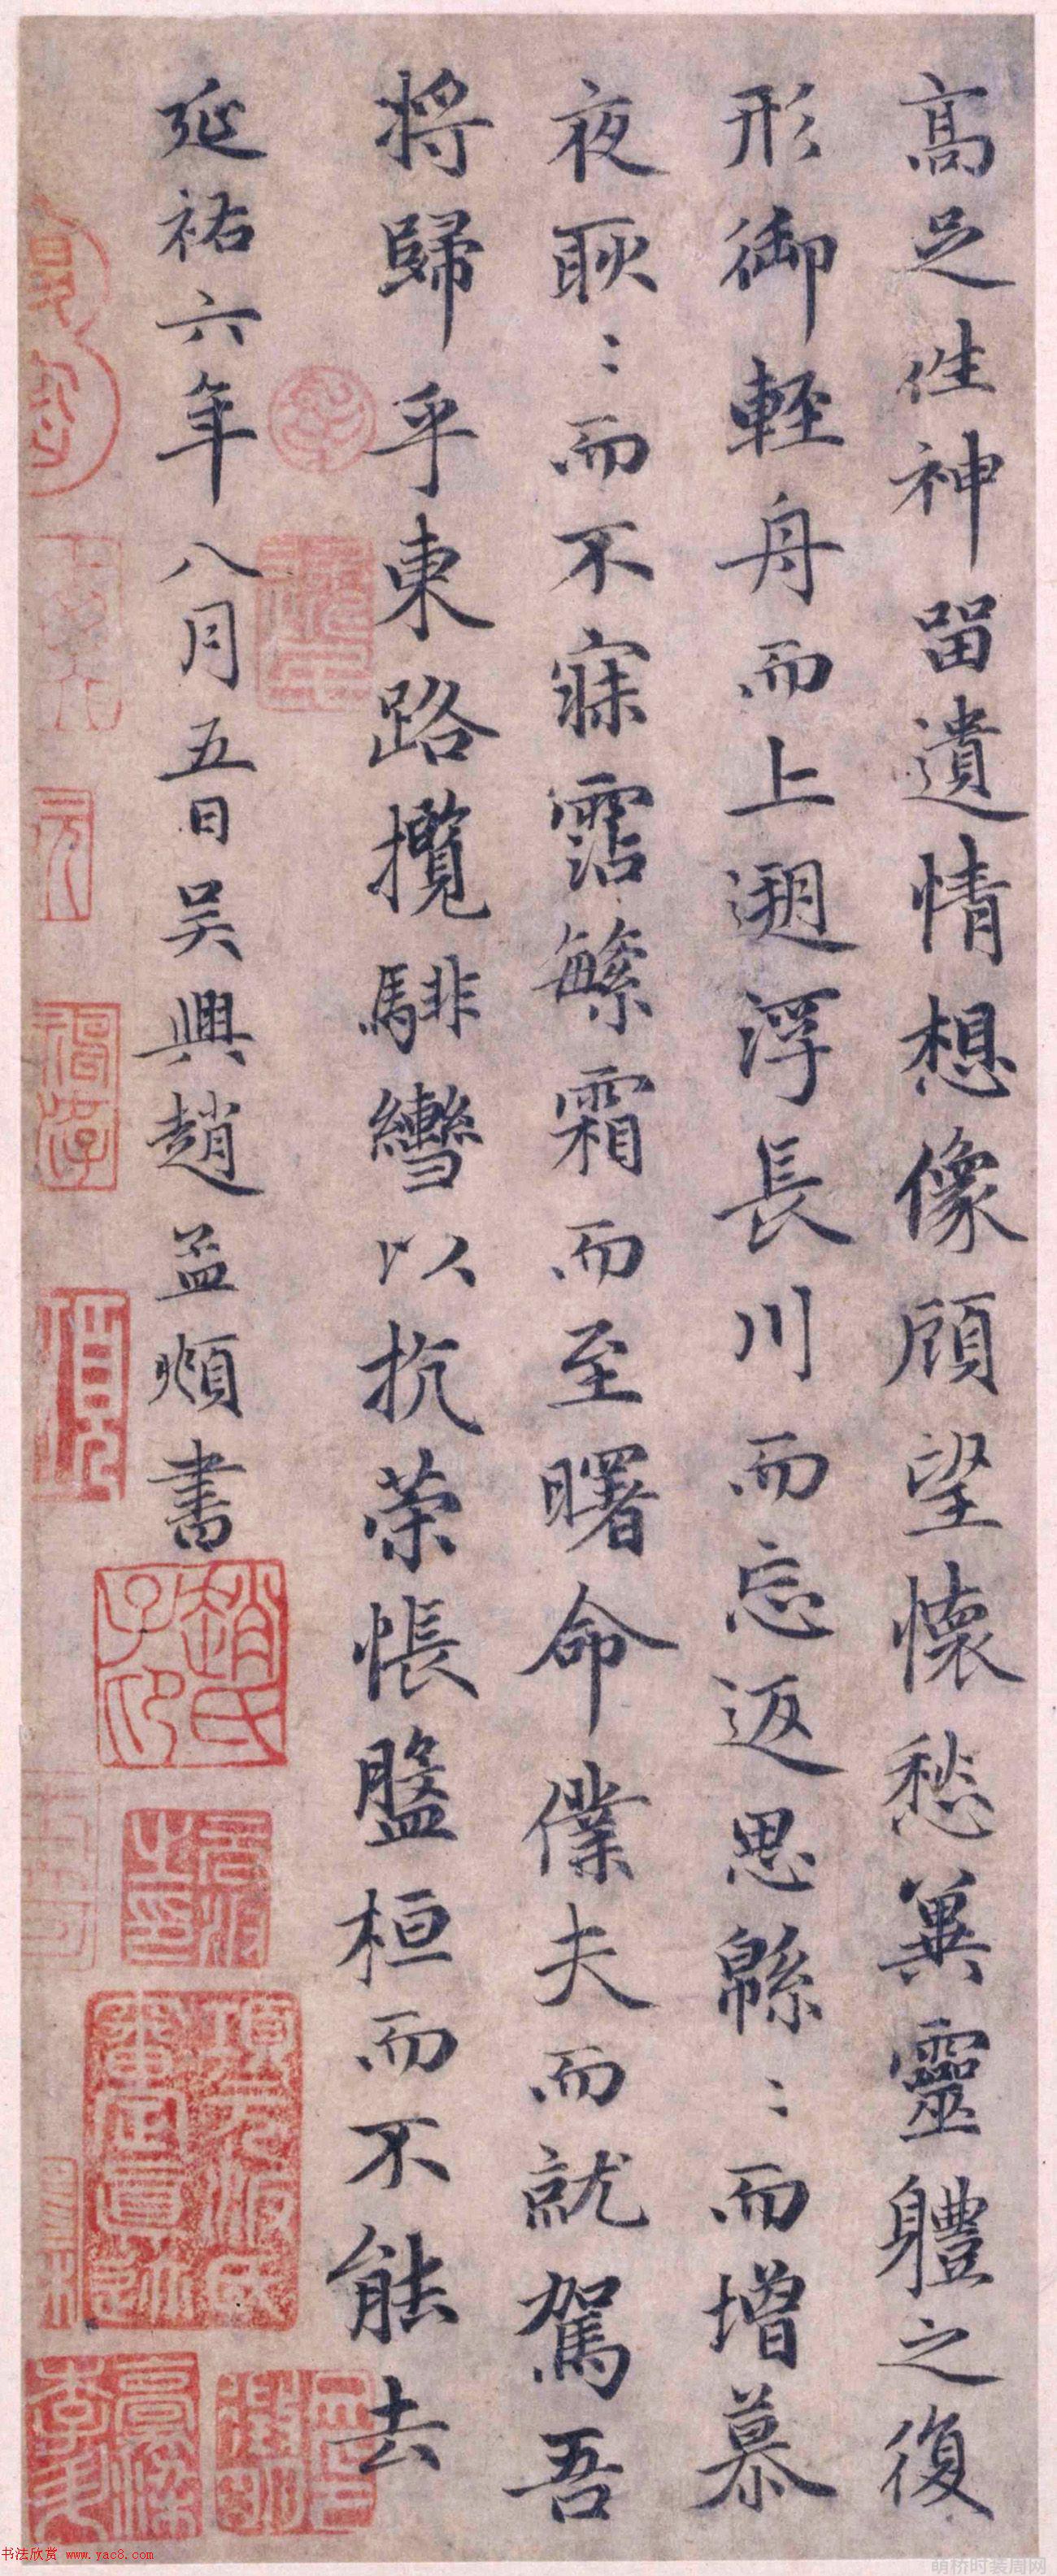 高足往神留遺情想像顧望懷愁兾靈體之復
形御輕舟而上遡浮長川而忘返思緜〻而增慕
夜耿〻而不寐霑繁霜而至曙命僕夫而就駕吾
將歸乎東路攬騑轡以抗策悵盤桓而不能去
延祐六年八月五日吴興趙孟頫書
趙氏子印
項元汴氏審定真跡
书法欣赏 www.yac8.com
萌桥时装周网